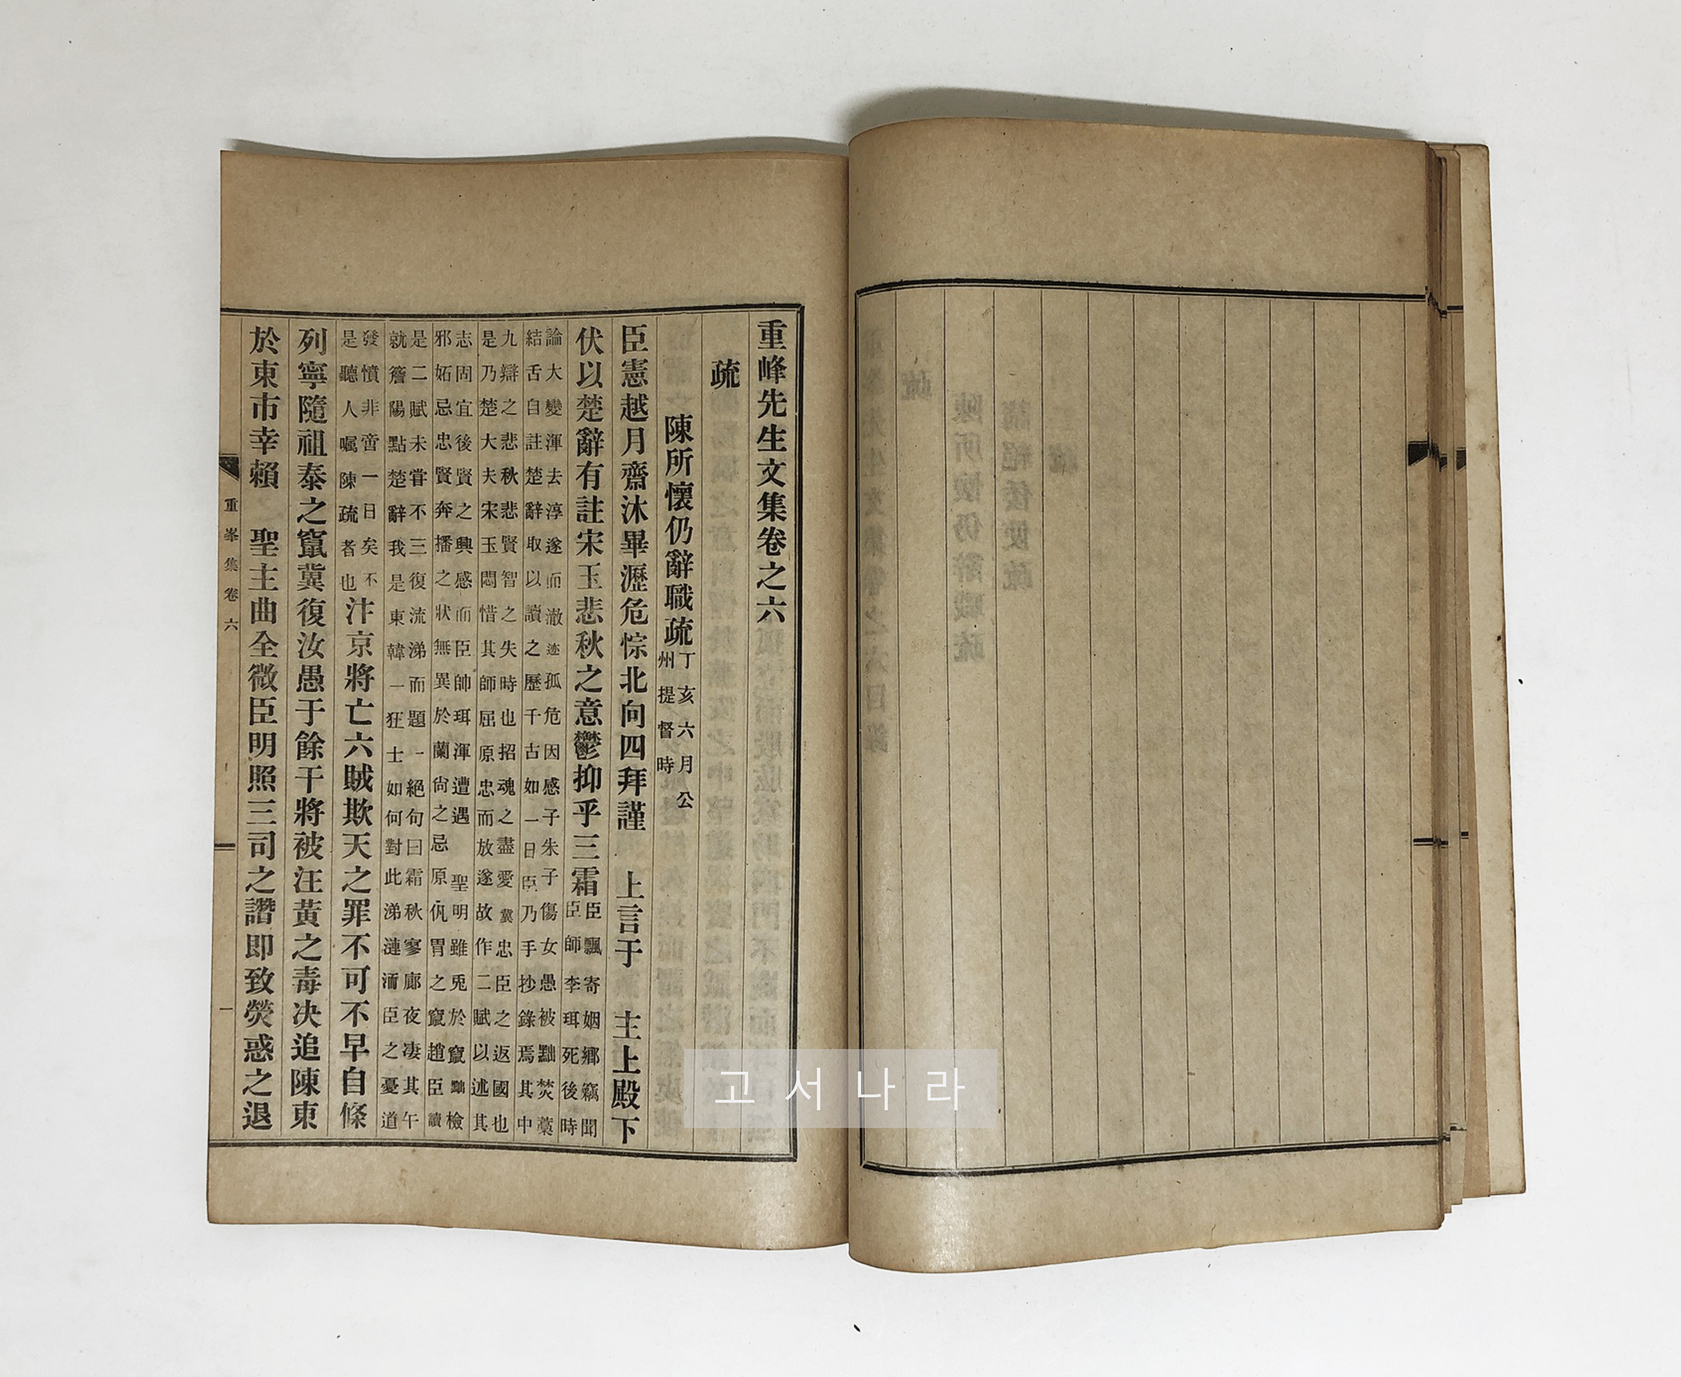 重峰先生文集卷之六
疏
陳所懷仍辭職疏
丁亥六月公
州提督時
臣憲越月齋沐畢瀝危悰北向四拜謹 上言于 主上殿下
伏以楚辭有註宋玉悲秋之意鬱抑乎三霜
臣飄寄姻鄉竊聞
臣師李珥死後時
論大變渾去淳遂而澈迹孤危因感子朱子傷女愚被黜焚藁
結舌自註楚辭取以讀之歷千古如一日臣乃手抄錄焉其中
九辯之悲秋悲賢智之失時也招魂之盡愛冀忠臣之返國也
是乃楚大夫宋玉悶惜其師屈原忠而放遂故作二賦以述其
志固宜後賢之興感而臣帥珥渾遭遇 聖明雖兎於竄黜檢
邪妬忌忠賢奔播之狀無異於蘭尙之忌原仇胃之竄趙臣讀
是二賦未嘗不三復流涕而題一絕句曰霜秋寥廊夜凄其午
就簷陽點楚辭我是東韓一狂士如何對此涕漣洏臣之憂道
發憤非啻一日矣不
是聽人囑陳疏者也
汴京將亡六賊欺天之罪不可不早自條
列寧隨祖泰之竄冀復汝愚于餘干將被汪黃之毒决追陳東
於東市幸賴 聖主曲全微臣明照三司之譖即致熒惑之退
重峯集卷六
一
고서나라